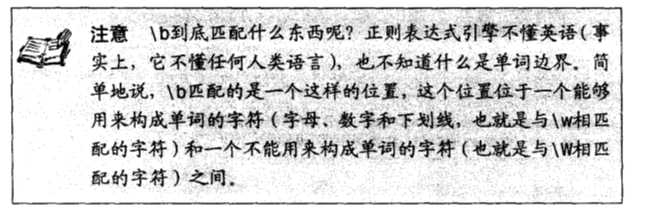 注意 \b到底匹配什么东西呢？正则表达式引擎不懂英语（事
实上，它不懂任何人类语言），也不知道什么是单词边界。简
单地说，\b匹配的是一个这样的位置，这个位置位于一个能够
用来构成单词的字符（字母、数字和下划线，也就是与\w相匹
配的字符）和一个不能用来构成单词的字符（也就是与\W相匹
配的字符）之间。